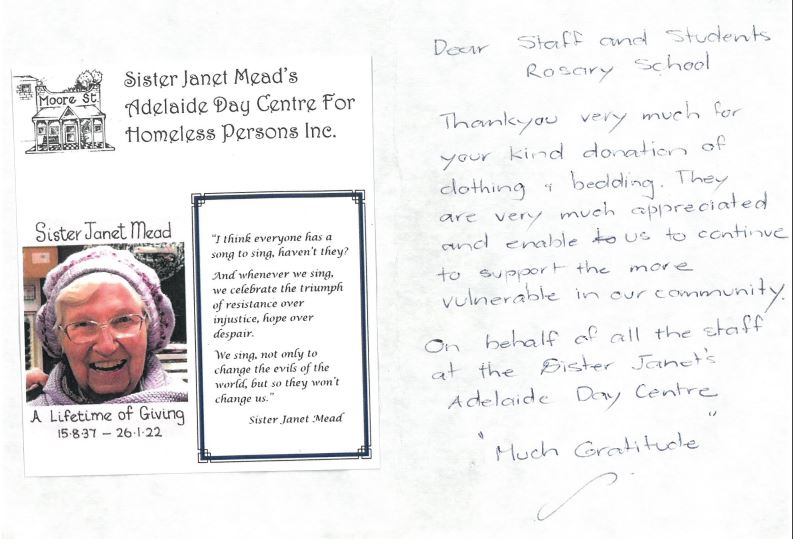 Moore St.
Sister Janet Mead's
Adelaide Day Centre For
Homeless Persons Inc.
Sister Janet Mead
A Lifetime of Giving
15·8·37 – 26·1·22
"I think everyone has a
song to sing, haven't they?
And whenever we sing,
we celebrate the triumph
of resistance over
injustice, hope over
despair.
We sing, not only to
change the evils of the
world, but so they won't
change us."
Sister Janet Mead
Dear Staff and Students
Rosary School
Thankyou very much for
your kind donation of
clothing & bedding. They
are very much appreciated
and enable to us to continue
to support the more
vulnerable in our community.
On behalf of all the staff
at the Sister Janet's
Adelaide Day Centre
"Much Gratitude"